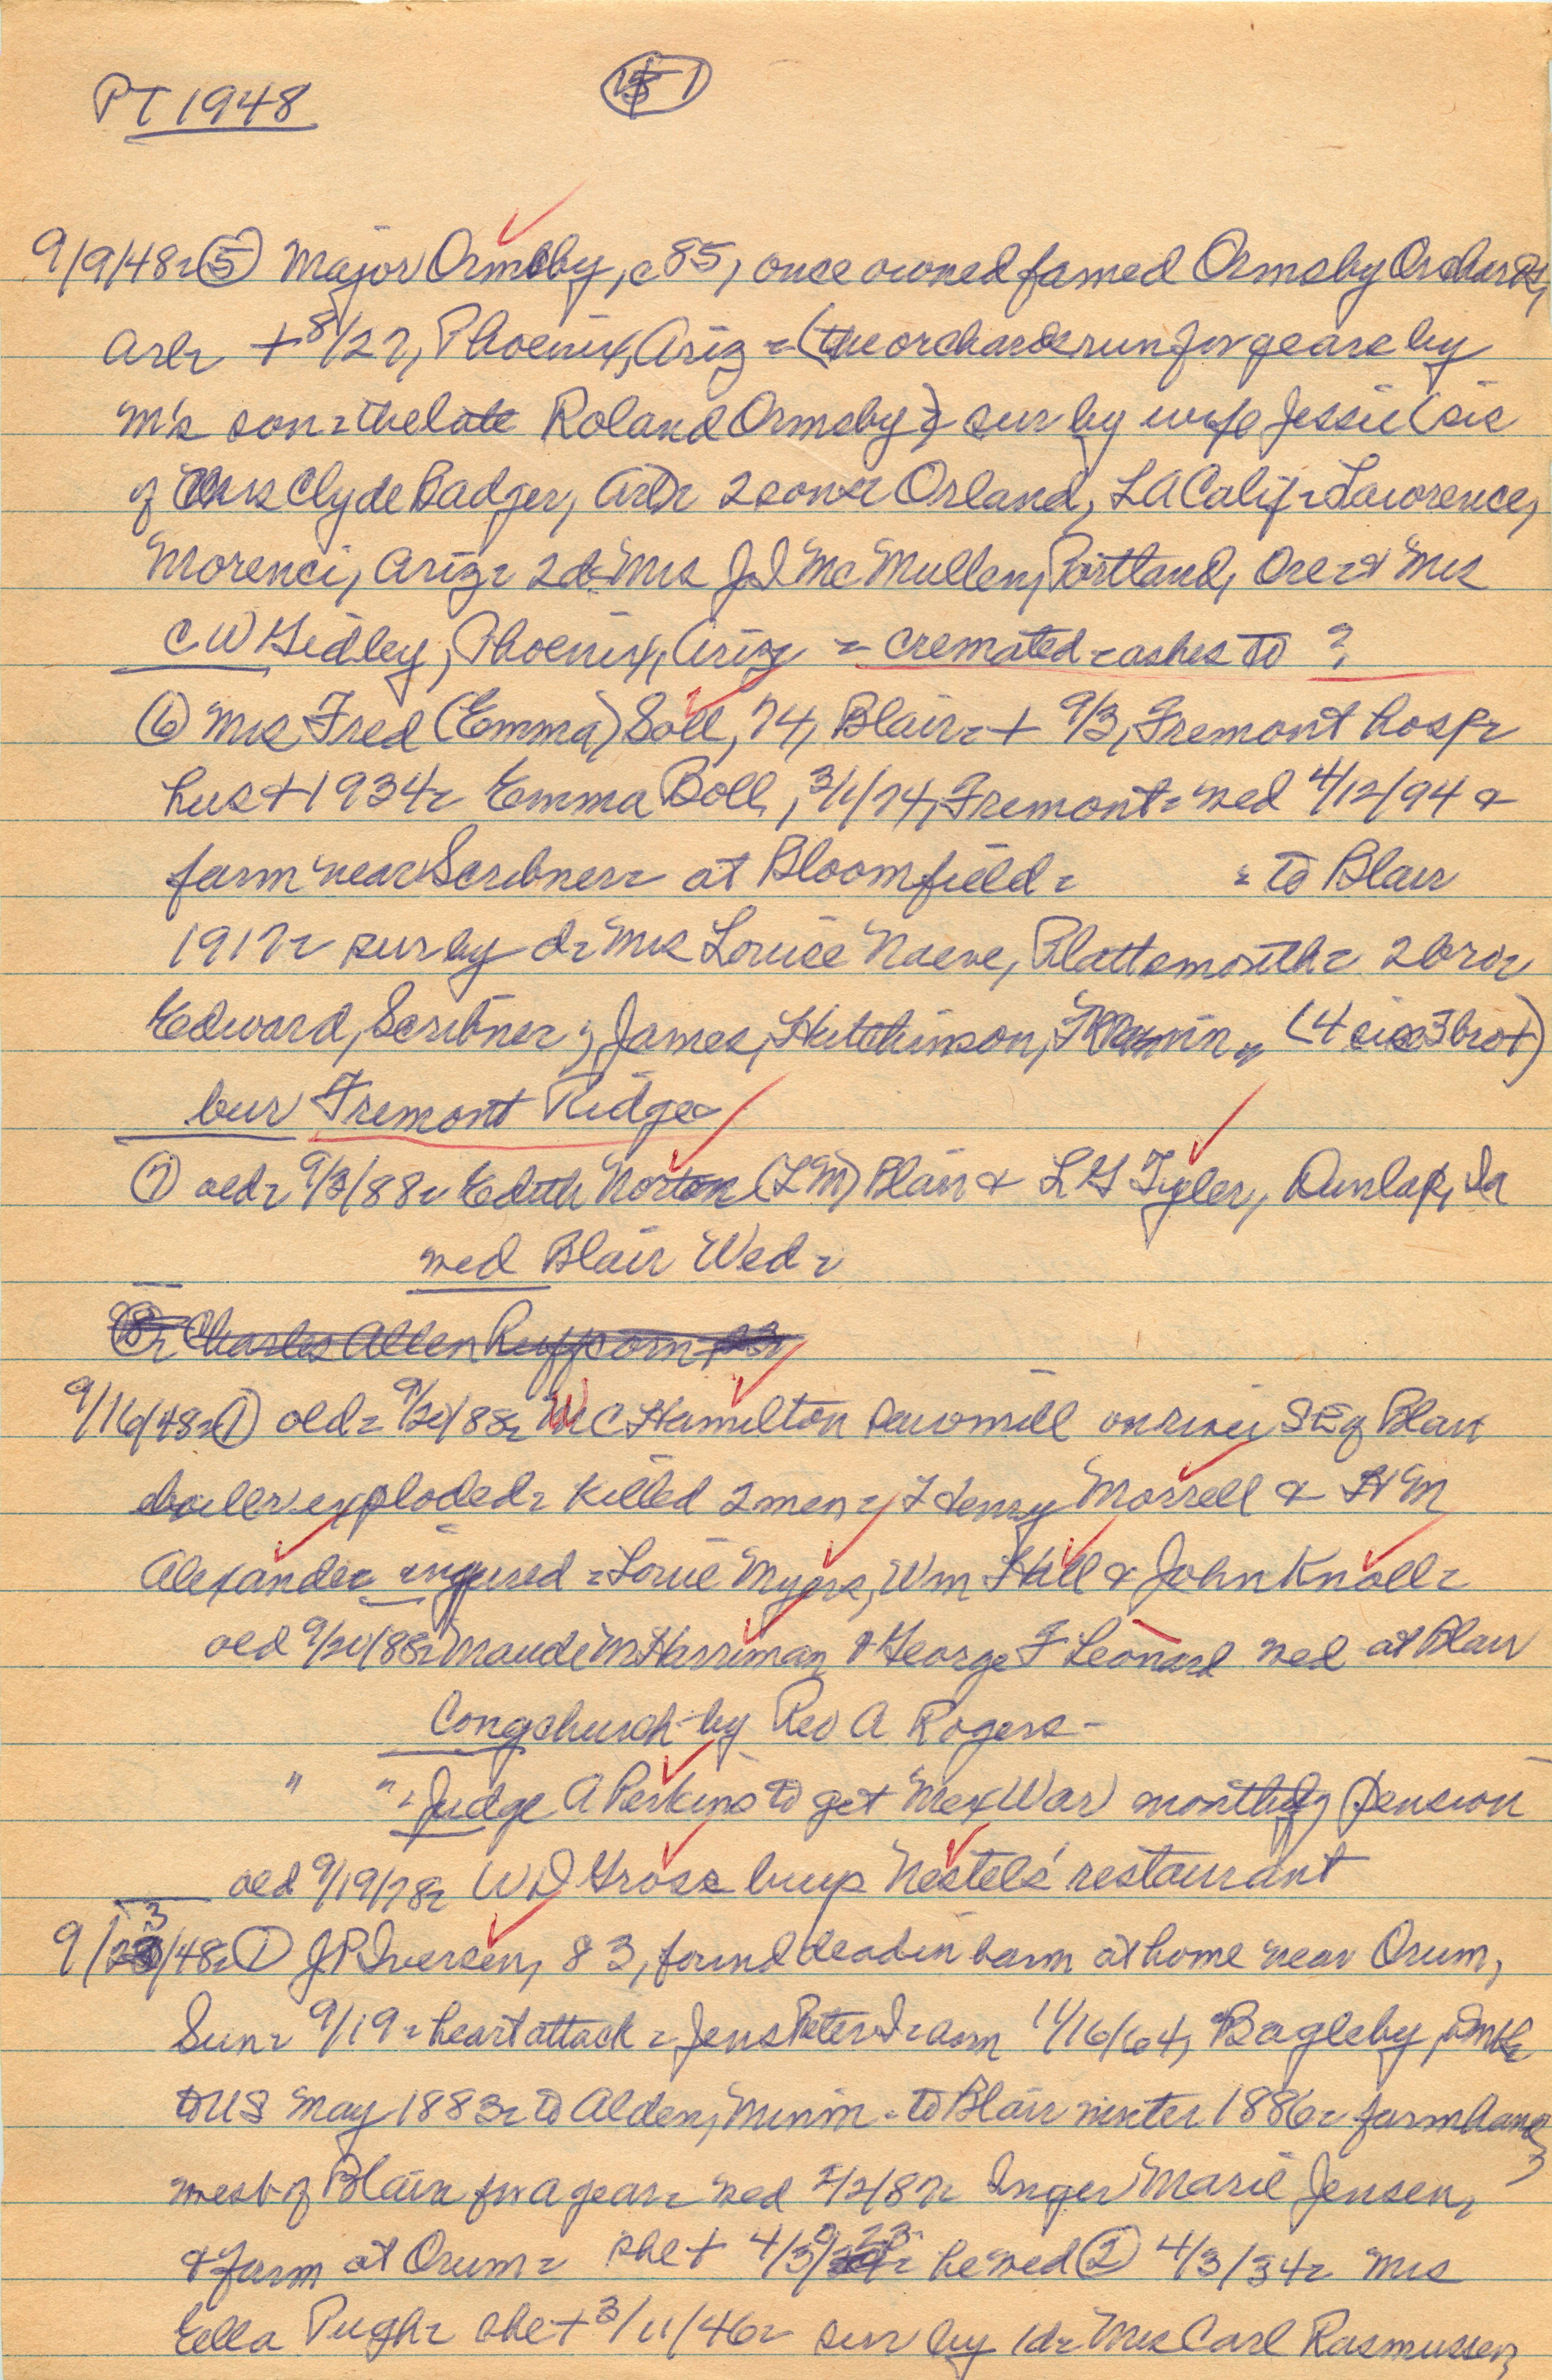 PT 1948
9/9/48 - (5) Major Ormsby, c 85, once owned famed Ormsby Orchards,
Arl - + 8/27, Phoenix, Ariz - (the orchards run for years by
M's son - the late Roland Ormsby) sur by wife Jessie (sis
of Mrs Clyde Badger, Arl - 2 sons - Orland, LA Calif - Lawrence,
Morenci, Ariz - 2 d - Mrs J I McMullen, Portland, Ore - & Mrs
C W Gidley, Phoenix, Ariz - cremated - ashes to ?
(6) Mrs Fred (Emma) Soll, 74, Blair - + 9/3, Fremont hosp -
hus + 1934 - Emma Boll, 3/1/74, Fremont - wed 4/12/94 &
farm near Scribner - at Bloomfield - - to Blair
1917 - sur by d - Mrs Louise Naeve, Plattsmouth - 2 bro -
Edward, Scribner; James, Hutchinson, Minn - (4 sis 3 bro +)
bur Fremont Ridge -
(7) old - 9/3/88 - Edith Norton (LM) Blair & L G Tyler, Dunlap, Ia
wed Blair Wed -
(8) - Charles Allen Rupp
9/16/48 - (1) old - 9/20/88 - W C Hamilton sawmill on river SE of Blair
boiler exploded - killed 2 men - Henry Morrell & H M
Alexander injured - Louie Myers, Wm Hill & John Knoll -
old 9/20/88 - Maude M Harriman & George F Leonard wed at Blair
Cong church - by Rev A Rogers -
" " - Judge A Perkins to get Mex War monthly pension
old 9/19/78 - W D Gross buys Nestels' restaurant
9/23/48 - (1) J P Iversen, 83, found dead in barn at home near Orum,
Sun - 9/19 - heart attack - Jens Peter I - born 11/16/64, Bagleby, Dmk -
to US May 1883 - to Alden, Minn - to Blair winter 1886 - farm hand
west of Blair for a year - wed 2/2/87 - Inger Marie Jensen,
& farm at Orum - she + he wed (2) 4/3/34 - Mrs
Ella Pugh - she + 3/11/46 - sur by 1 d - Mrs Carl Rasmussen,